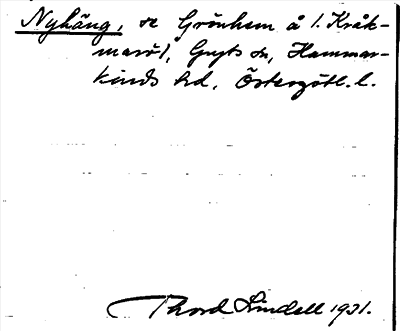 Nyhäng, se Grönhem å l. Kråk-
marö 1, Gryts sn, Hammar-
kinds hd, Östergötl. l.
Thord Lindell 1931.